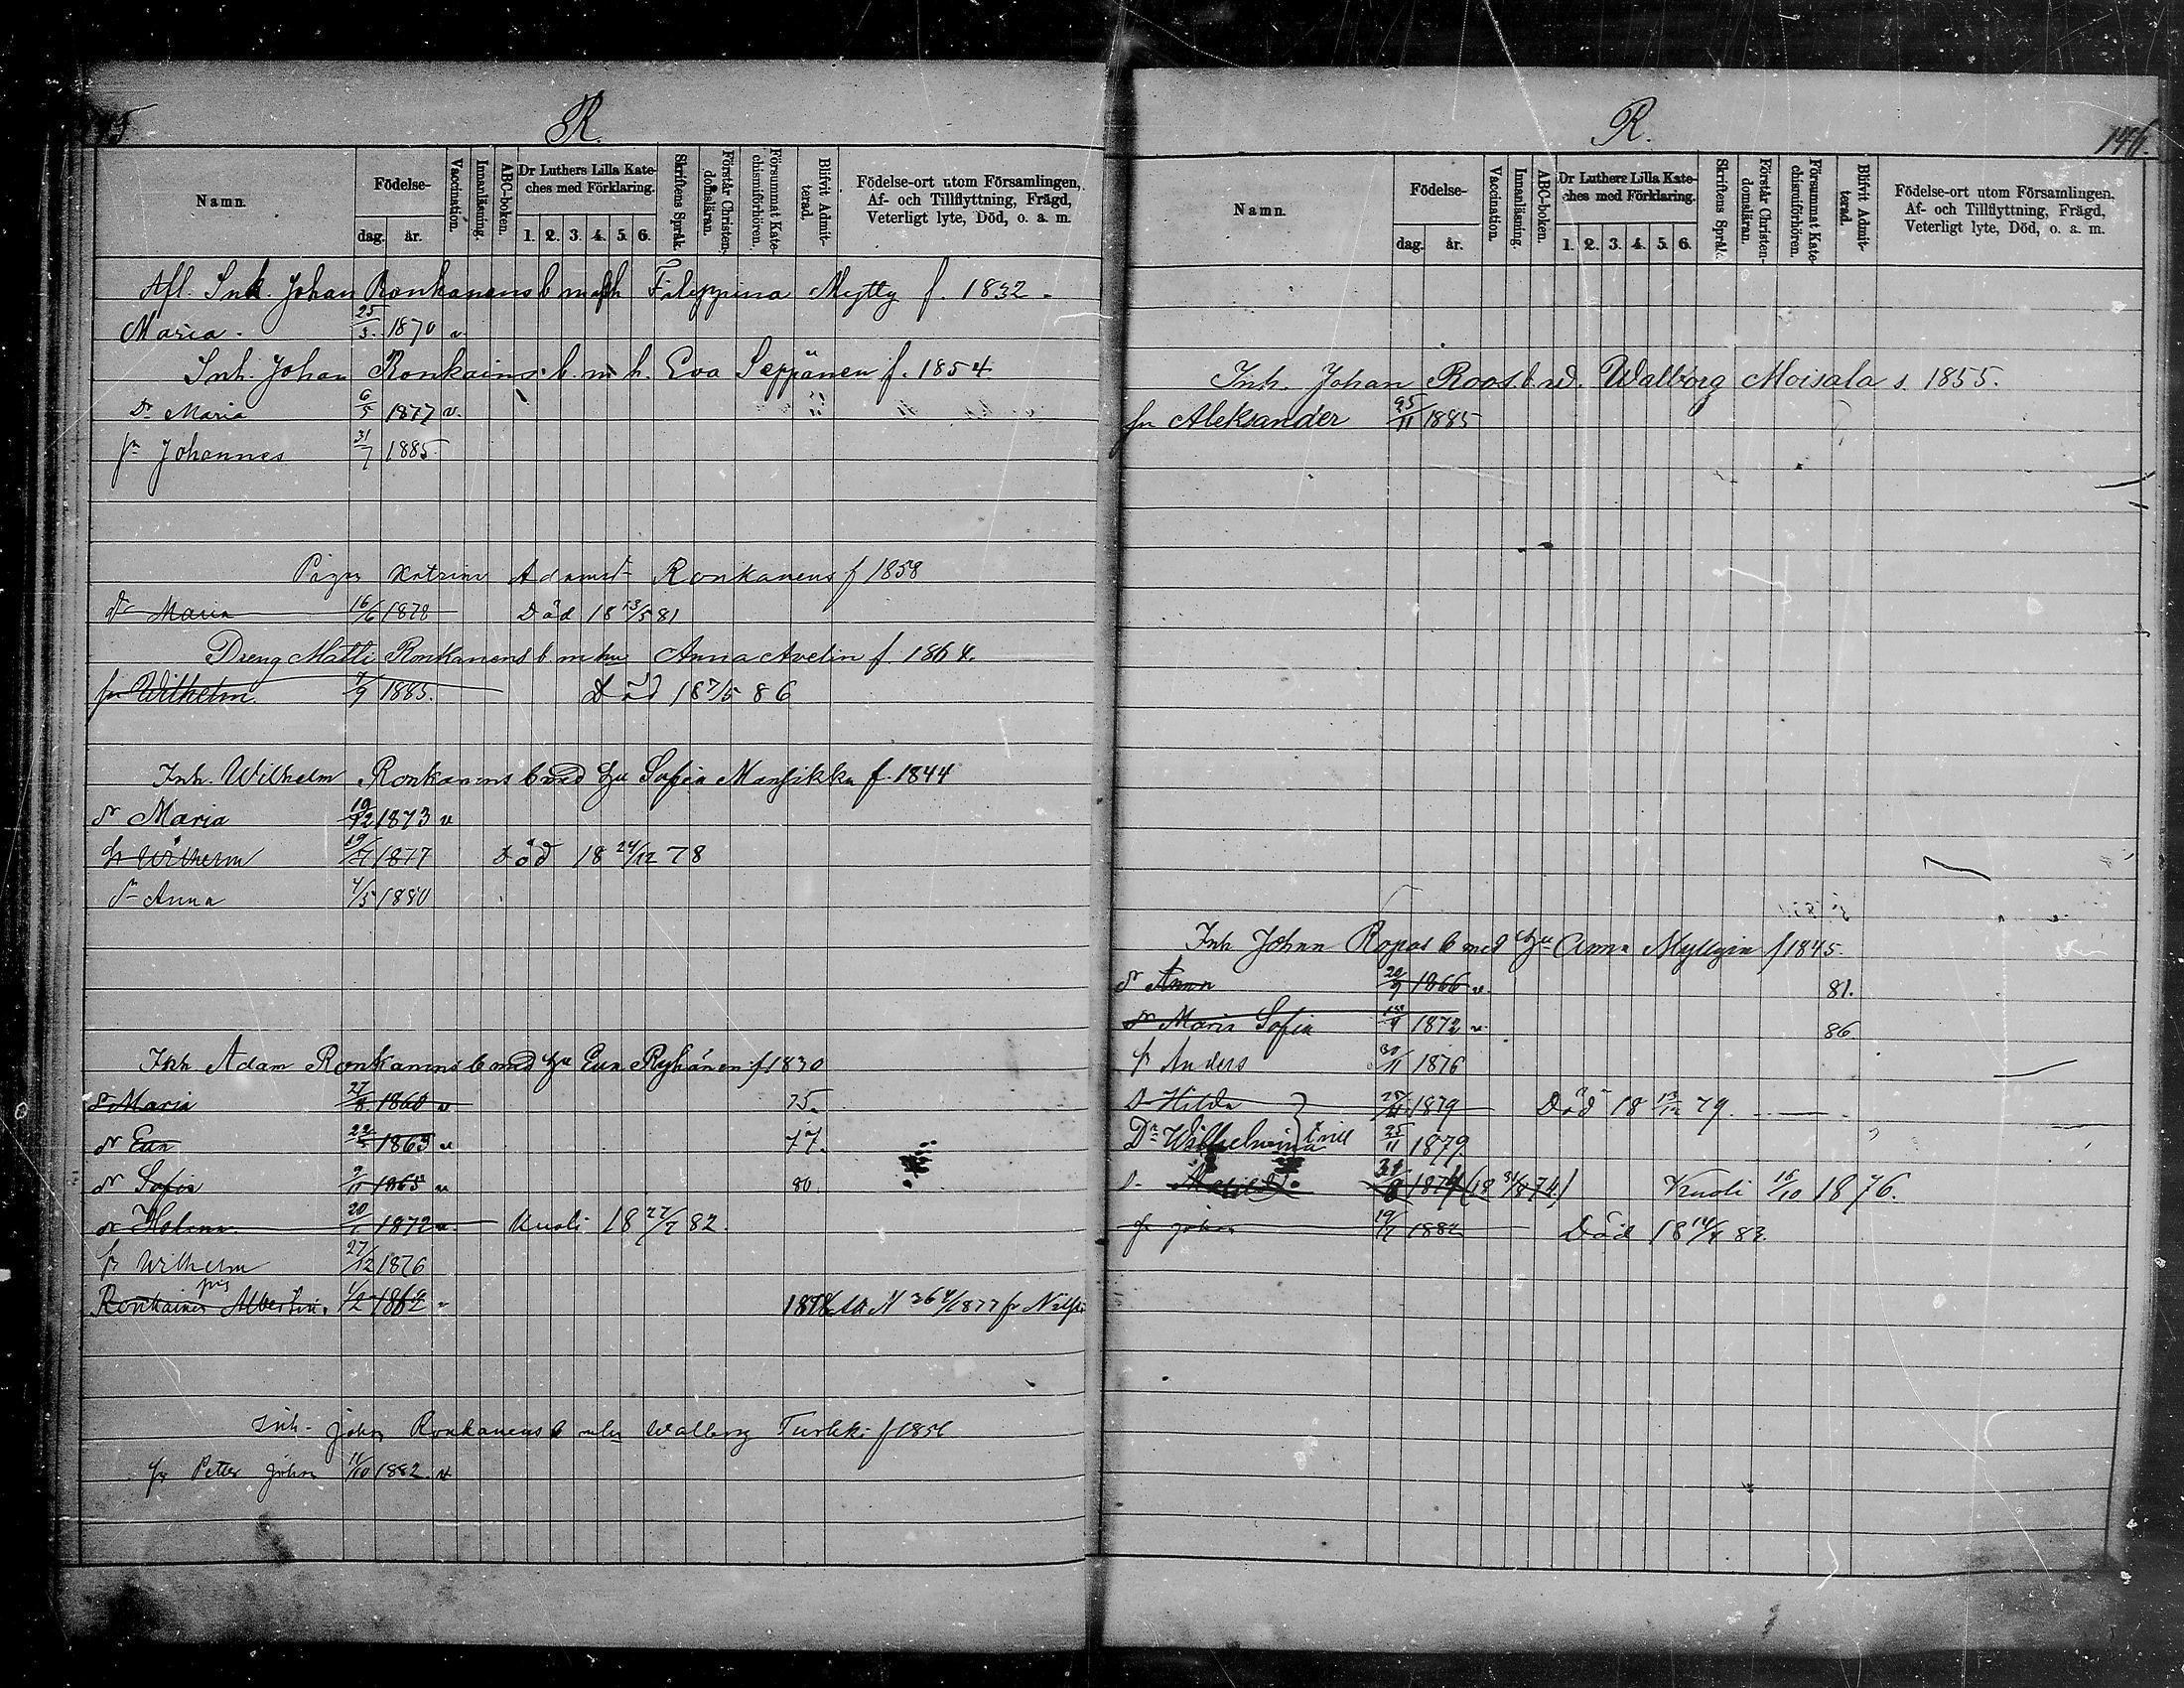 R.
Namn.
Födelse-
dag.
år.
Vaccination.
Innanläsning.
ABC-boken.
Dr Luthers Lilla Kate-
ches med Förklaring.
1. 2. 3. 4. 5. 6.
Skriftens Språk.
Förstår Christen-
domsläran.
Försummat Kate-
chismiförhören.
Blifvit Admit-
terad.
Födelse-ort utom Församlingen,
Af- och Tillflyttning, Frägd,
Veterligt lyte, Död, o. a. m.
Afl. Inh. Johan Ronkanens b m Filippina Mytty f. 1832.
Maria. 25/3. 1870 v.
Inh. Johan Ronkains. b. m h. Eva Seppänen f. 1854
Dr Maria 6/5 1877 v.
fr Johannes 31/7 1885.
Pigan Katrina Adamsd Ronkanens f 1858
dr Maria 16/6 1878 Död 18 13/5 81
Dreng Matti Ronkanens b m hu Anna Avelin f. 1864.
fr Wilhelm 7/9 1885. Död 18 7/5 86
Inh. Wilhelm Ronkanens b med hu Sofia Mansikka f. 1844
dr Maria 19/12 1873 v
fr Wilhelm 19/7 1877 Död 18 24/12 78
dr Anna 4/5 1880
Inh Adam Ronkanens b med hu Eva Ryhänen f 1830
dr Maria 27/8 1860 v 75.
dr Eva 22/5 1863 v 77.
dr Sofia 9/11 1865 v 80.
dr Helena 20/1 1872 v. Kuoli 18 27/7 82.
fr Wilhelm 27/12 1876
Ronkainen pig Albertina 1/2 1862 v 1877 fr Nilsiä
Inh. Johan Ronkanens b m hu Walborg Turkki f 1856
fr Petter Johan 11/10 1882. v
R.
146.
Namn.
Födelse-
dag.
år.
Vaccination.
Innanläsning.
ABC-boken.
Dr Luthers Lilla Kate-
ches med Förklaring.
1. 2. 3. 4. 5. 6.
Skriftens Språk.
Förstår Christen-
domsläran.
Försummat Kate-
chismiförhören.
Blifvit Admit-
terad.
Födelse-ort utom Församlingen,
Af- och Tillflyttning, Frägd,
Veterligt lyte, Död, o. a. m.
Inh. Johan Roos. b. Walborg Moisala s. 1855.
fr Aleksander 25/11 1885
Inh Johan Ropos b med hu Anna Myllyin f 1845.
dr Anna 20/9 1866 v. 81.
dr Maria Sofia 1872 v. 86.
fr Anders 30/11 1876
dr Hilda 1879 Död 18 13/12 79.
Dr Wilhelmina } tvill 25/11 1879
dr Matilda 31/8 1874 (18 31/8 74) Kuoli 16/10 1876.
fr Johan 19/7 1882 Död 18 14/4 83.